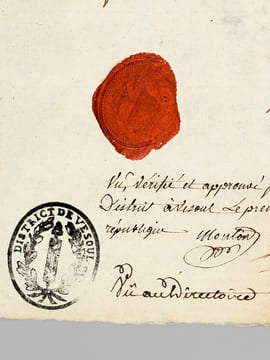 Vu, Vérifié et approuvé
District à Vesoul Le pre
république Mouton
Vû au Directoire
DISTRICT DE VESOUL